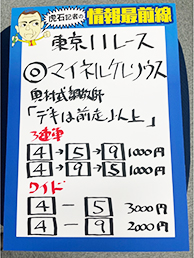 虎石記者の
情報最前線
東京11レース
◎マイネルケレリウス
奥村武調教師
「デキは前走以上」
3連単
4→5→9 1000円
4→9→5 1000円
ワイド
4－5 3000円
4－9 2000円